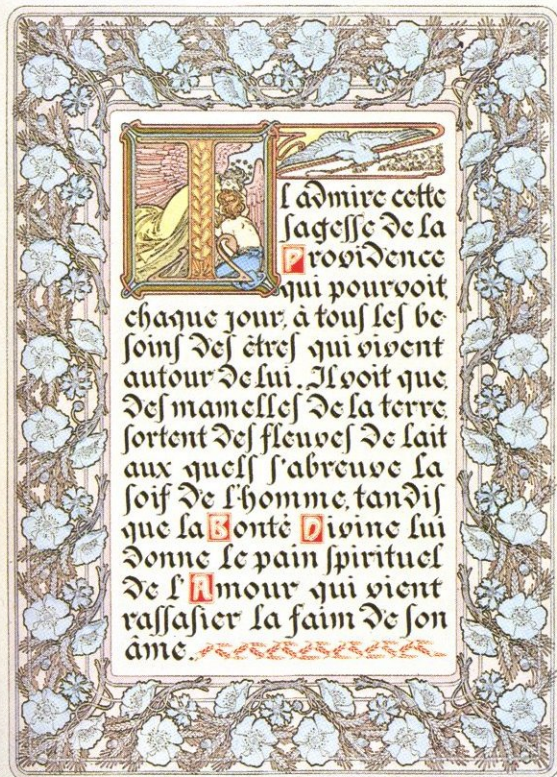 Il admire cette
sagesse de la
Providence
qui pourvoit,
chaque jour, à tous les be-
soins des êtres qui vivent
autour de lui. Il voit que
des mamelles de la terre
sortent des fleuves de lait
aux quels s'abreuve la
soif de l'homme, tandis
que la Bonté Divine lui
donne le pain spirituel
de l'Amour qui vient
rassasier la faim de son
âme.